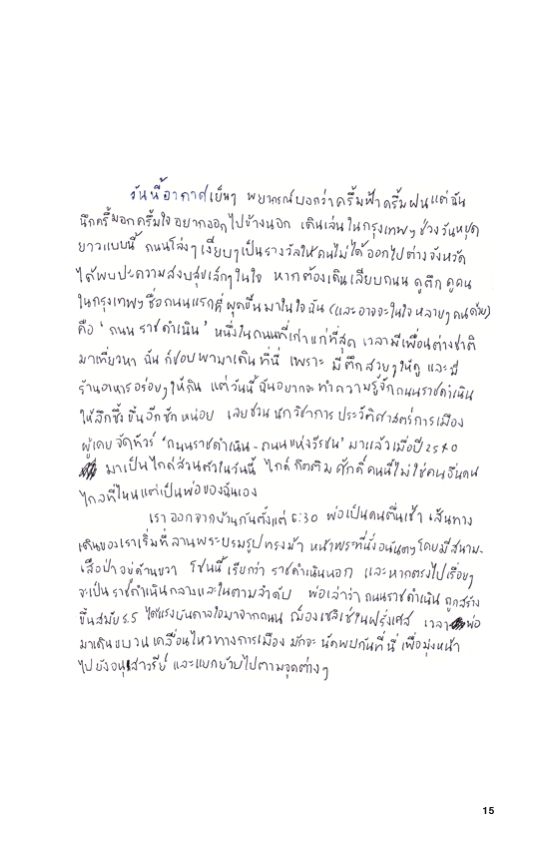 วันนี้อากาศเย็นๆ พยากรณ์บอกว่าครึ้มฟ้าครึ้มฝนแต่ฉัน
นึกครึ้มอกครึ้มใจอยากออกไปข้างนอก เดินเล่นในกรุงเทพฯ ช่วงวันหยุด
ยาวแบบนี้ ถนนโล่งๆ เงียบๆ เป็นรางวัลให้คนไม่ได้ออกไปต่างจังหวัด
ได้พบประความสงบสุขเล็กๆ ในใจ หากต้องเดินเลียบถนน ดูตึก ดูคน
ในกรุงเทพฯ ชื่อถนนแรกที่ผุดขึ้นมาในใจฉัน (และอาจจะในใจหลายๆ คนด้วย)
คือ 'ถนนราชดำเนิน' หนึ่งในถนนที่เก่าแก่ที่สุด เวลามีเพื่อนต่างชาติ
มาเที่ยวหา ฉันก็ชอบพามาเดินที่นี่ เพราะ มีตึกสวยๆ ให้ดู และมี
ร้านอาหารอร่อยๆ ให้กิน แต่วันนี้ฉันอยากจะทำความรู้จักถนนราชดำเนิน
ให้ลึกซึ้งขึ้นอีกซักหน่อย เลยชวนนักวิชาการประวัติศาสตร์การเมือง
ผู้เคยจัดทัวร์ 'ถนนราชดำเนิน - ถนนแห่งวีรชน' มาแล้วเมื่อปี 2540
มาเป็นไกด์ส่วนตัวในวันนี้ ไกด์กิตติมศักดิ์คนนี้ไม่ใช่คนอื่นคน
ไกลที่ไหนแต่เป็นพ่อของฉันเอง
เราออกจากบ้านกันตั้งแต่ 6:30 พ่อเป็นคนตื่นเช้า เส้นทาง
เดินของเราเริ่มที่ลานพระบรมรูปทรงม้า หน้าพระที่นั่งอนันตฯ โดยมีสนาม-
เสือป่าอยู่ด้านขวา โซนนี้เรียกว่า ราชดำเนินนอก และหากตรงไปเรื่อยๆ
จะเป็นราชดำเนินกลางและในตามลำดับ พ่อเล่าว่า ถนนราชดำเนิน ถูกสร้าง
ขึ้นสมัย ร.5 ได้แรงบันดาลใจมาจากถนน ฌ็องเซลิเซ่ในฝรั่งเศส เวลาพ่อ
มาเดินขบวนเคลื่อนไหวทางการเมือง มักจะนัดพบกันที่นี่ เพื่อมุ่งหน้า
ไปยังอนุสาวรีย์ และแยกย้ายไปตามจุดต่างๆ
15